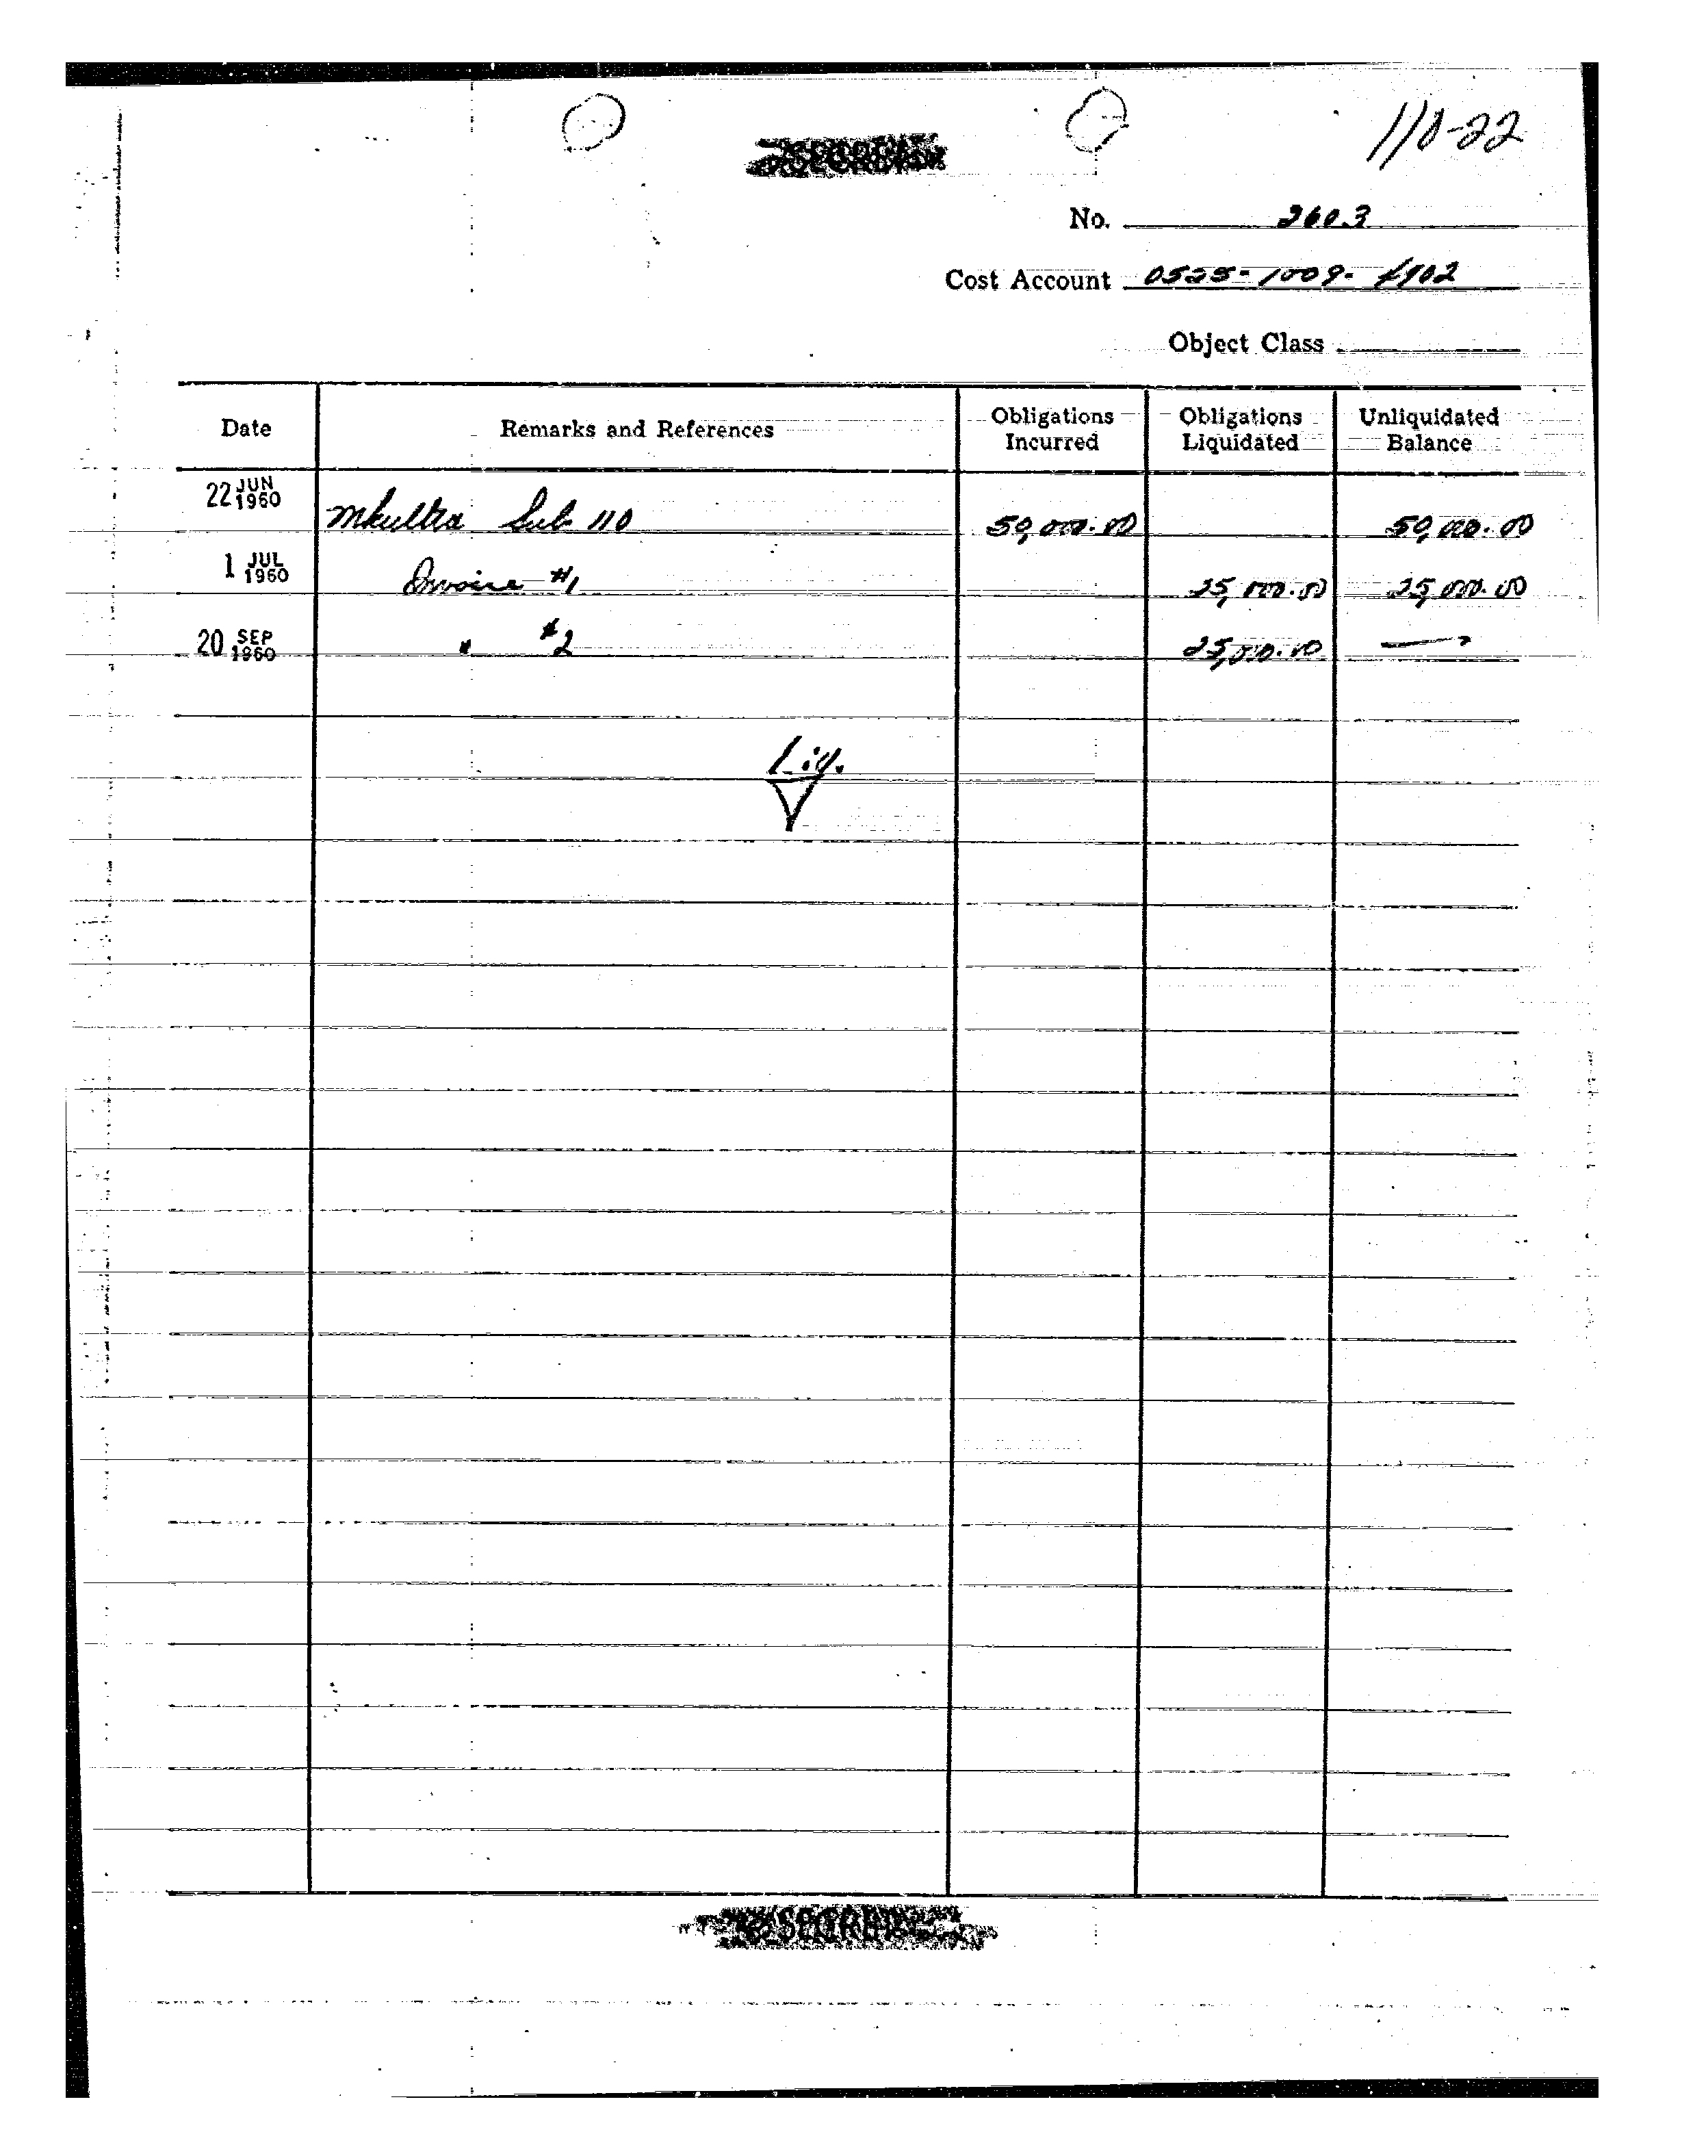 110-22
SECRET
No. 2603
Cost Account 0525-1009-4902
Object Class
Date Remarks and References Obligations Incurred Obligations Liquidated Unliquidated Balance
22 JUN 1960 Mkultra Sub 110 50,000.00 50,000.00
1 JUL 1960 Invoice #1 25,000.00 25,000.00
20 SEP 1960 " #2 25,000.00 —
Liq.
SECRET